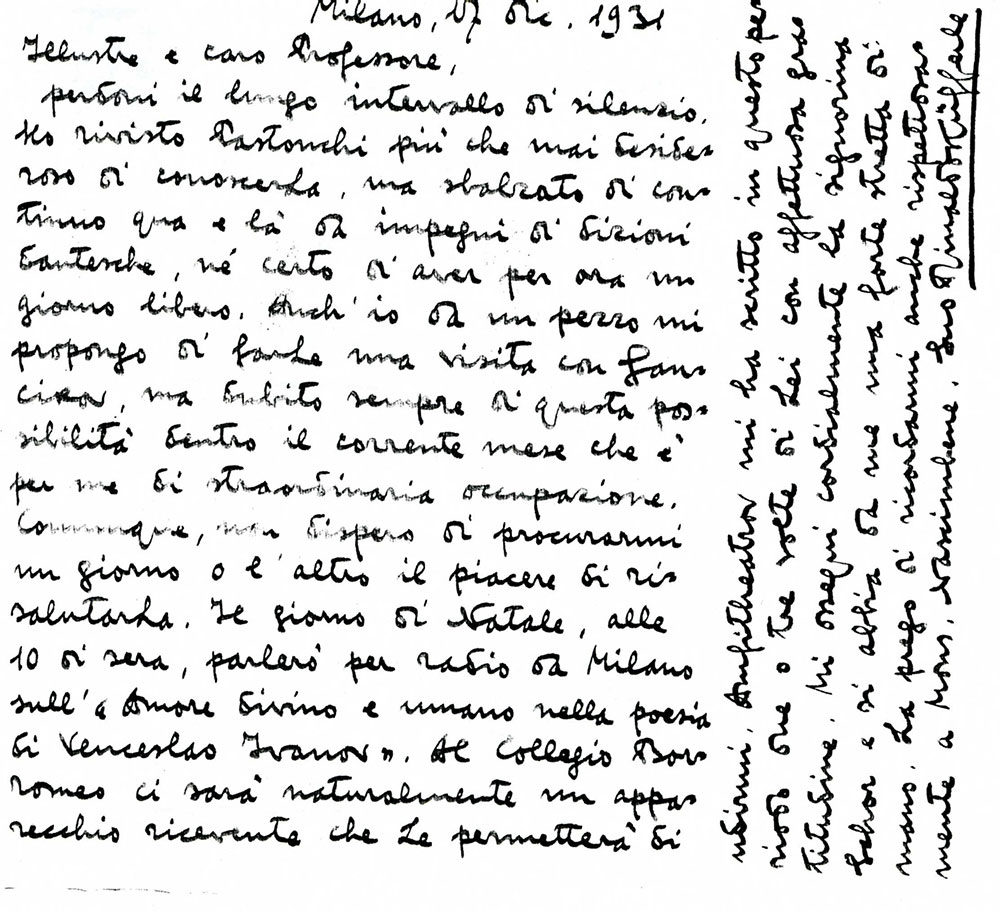 Milano, 17 dic. 1931
Illustre e caro Professore,
perdoni il lungo intervallo di silenzio.
Ho rivisto Pastonchi più che mai deside-
roso di conoscerLa, ma sbalzato di con-
tinuo qua e là da impegni di dizioni
dantesche, né certo di aver per ora un
giorno libero. Anch'io da un pezzo mi
propongo di farLe una visita con Gan-
cikov, ma dubito sempre di questa pos-
sibilità dentro il corrente mese che è
per me di straordinaria occupazione.
Comunque, non dispero di procurarmi
un giorno o l'altro il piacere di ri-
salutarLa. Il giorno di Natale, alle
10 di sera, parlerò per radio da Milano
sull'«Amore divino e umano nella poesia
di Venceslao Ivanov». Al Collegio Bor-
romeo ci sarà naturalmente un appa-
recchio ricevente che Le permetterà di
udirmi. Amfitheatrov mi ha scritto in questo pe-
riodo due o tre volte di Lei con affettuosa gra-
titudine. Mi ossequi cordialmente la signorina
Schor e si abbia da me una forte stretta di
mano. La prego di ricordarmi anche rispettosa-
mente a Mons. Nascimbene. Suo Rinaldo Küfferle